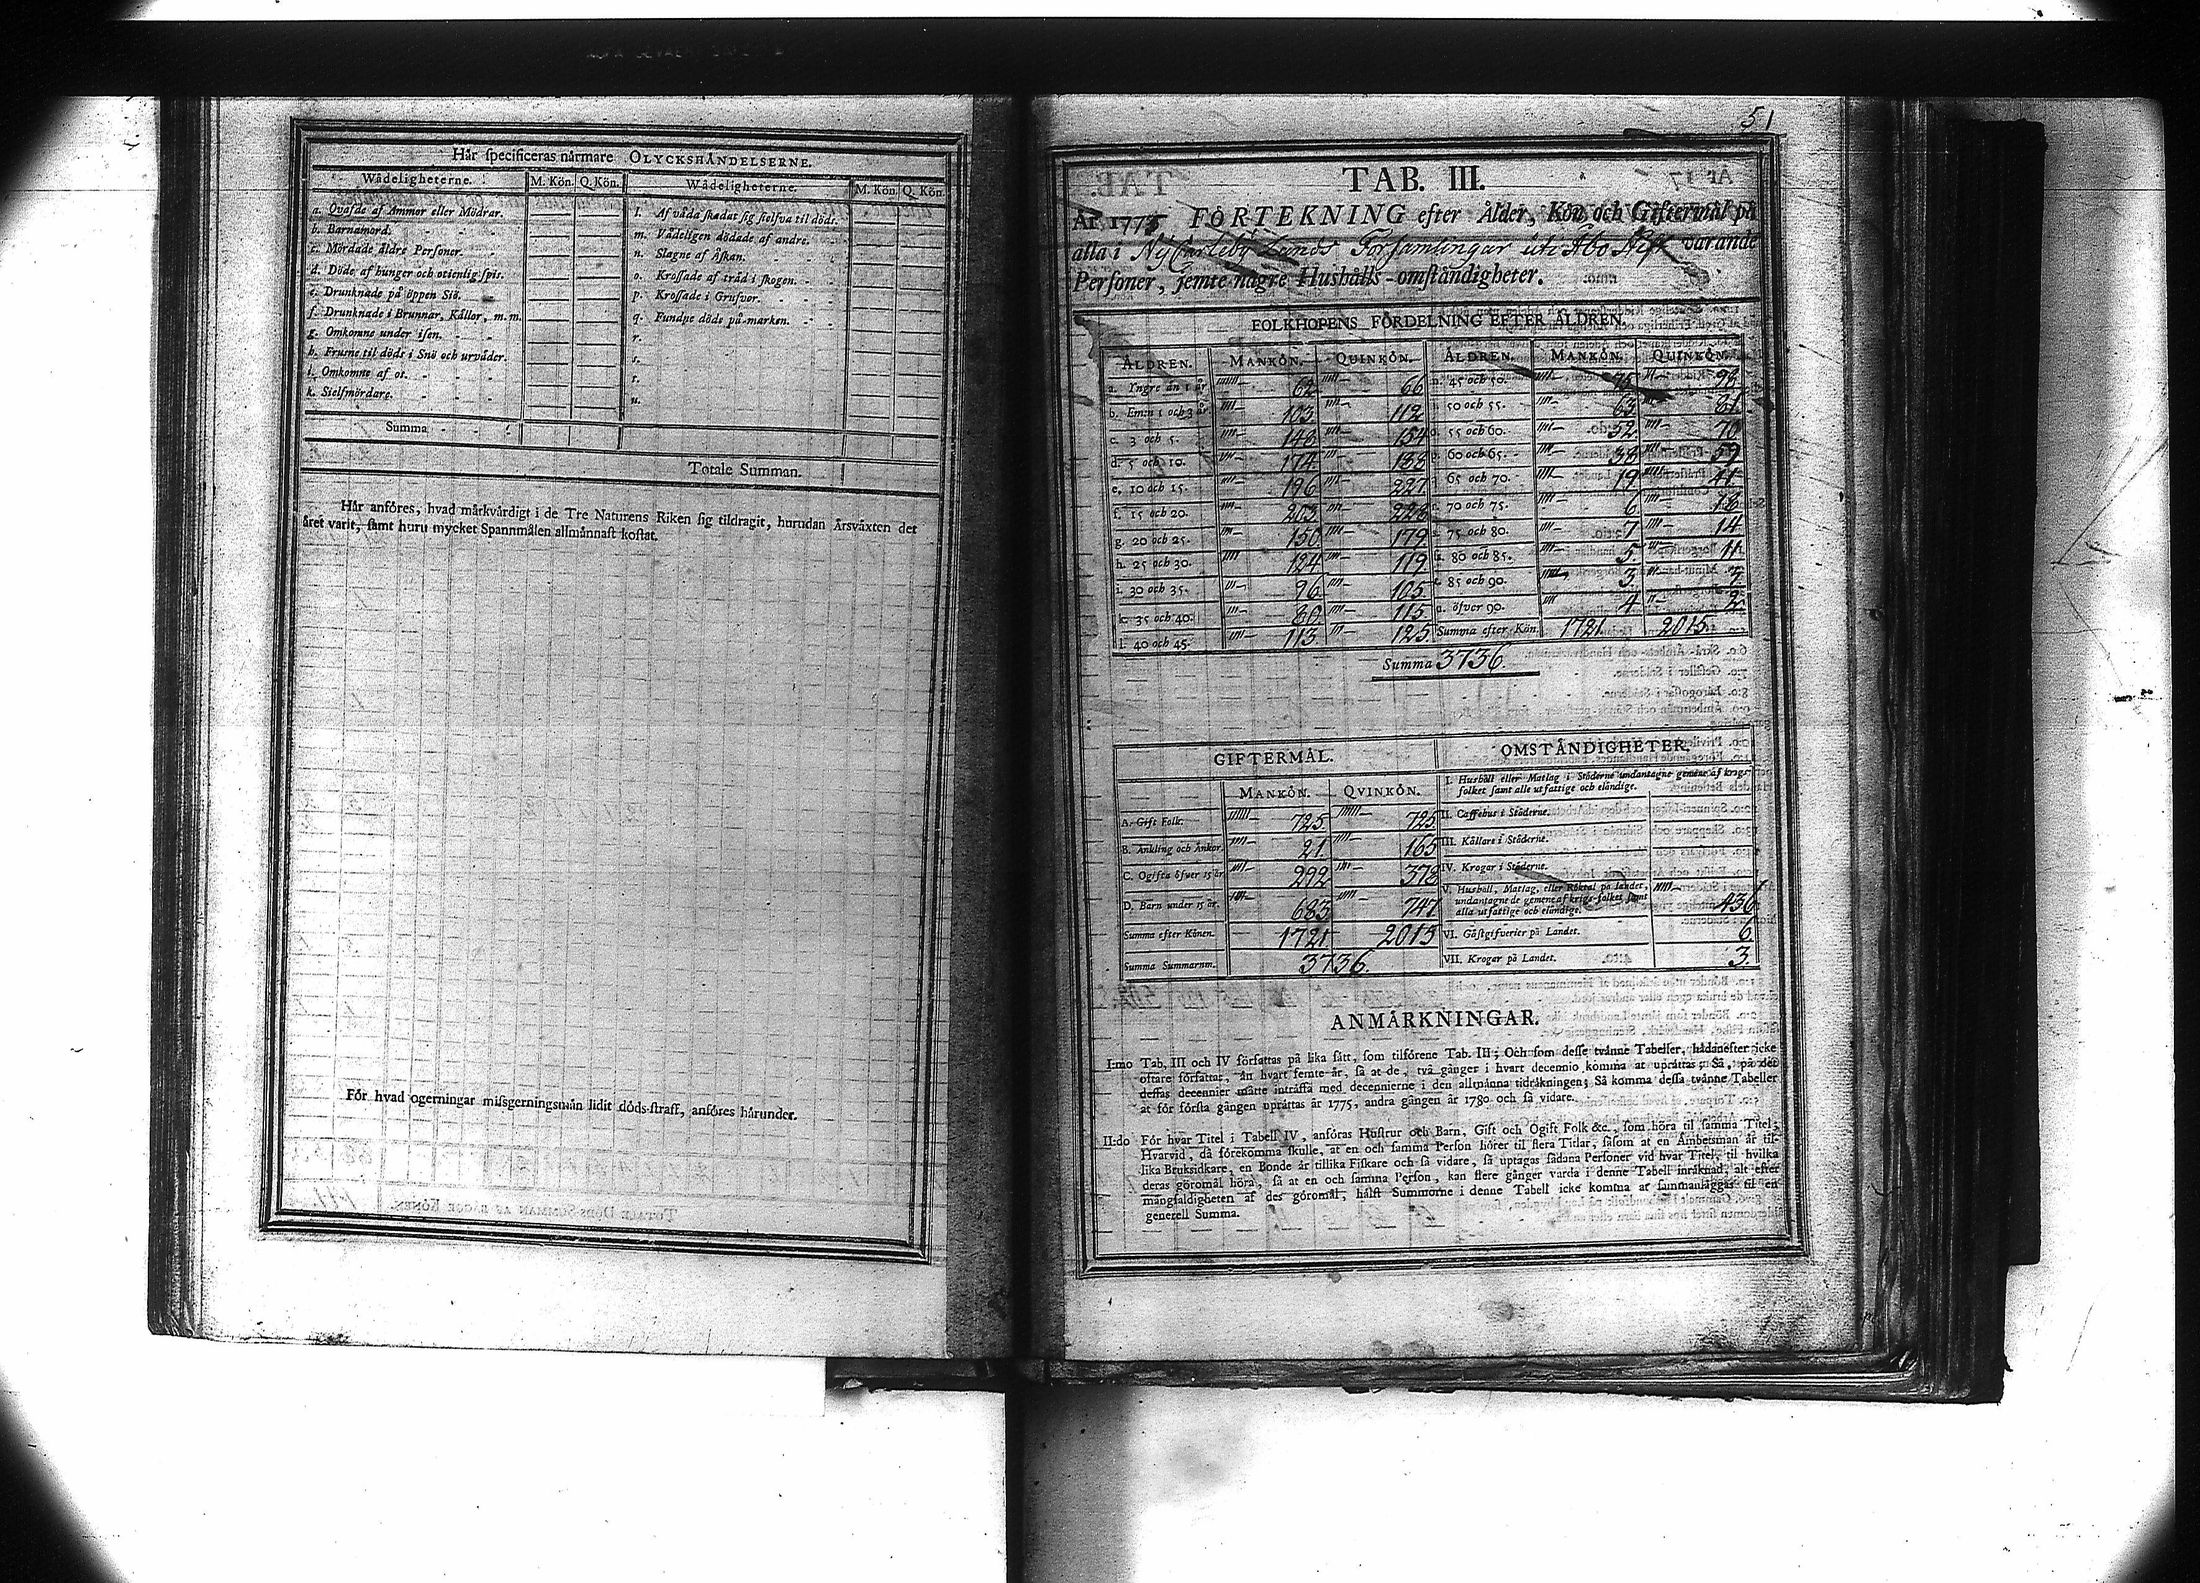 Hår specificeras nårmare OLYCKSHÅNDELSERNE.
Wådeligheterne. M. Kön. Q. Kön. Wådeligheterne. M. Kön. Q. Kön.
a. Qvafde af Ammor eller Mödrar.
b. Barnamord.
c. Mördade åldre Personer.
d. Döde af hunger och otienlig spis.
e. Drunknade på öppen Siö.
f. Drunknade i Brunnar, Kållor, m. m.
g. Omkomne under isen.
h. Frusne til döds i Snö och urvåder.
i. Omkomne af os.
k. Sielfmördare.
l. Af våda skadat sig sielfva til döds.
m. Vådeligen dödade af andre.
n. Slagne af Åskan.
o. Krossade af tråd i skogen.
p. Krossade i Grufvor.
q. Fundne döde på marken.
r.
s.
t.
u.
Summa
Totale Summan.
Hår anföres, hvad mårkvårdigt i de Tre Naturens Riken sig tildragit, hurudan Årsvåxten det
året varit, samt huru mycket Spannmålen allmånnast kostat.
För hvad ogerningar missgerningsmån lidit döds-straff, anföres hårunder.
51
TAB. III.
År 1775 FÖRTEKNING efter Ålder, Kön och Giftermål på
alla i NyCarleby Lands Församlingar uti Åbo Stift varande
Personer, jemte någre Hushålls-omståndigheter.
FOLKHOPENS FÖRDELNING EFTER ÅLDREN.
ÅLDREN. MANKÖN. QUINKÖN. ÅLDREN. MANKÖN. QUINKÖN.
a. Yngre ån 1 år 62 66 m. 45 och 50. 75 98
b. Em:n 1 och 3 år. 103 112 n. 50 och 55. 63 81
c. 3 och 5. 148 154 o. 55 och 60. 52 70
d. 5 och 10. 174 188 p. 60 och 65. 38 59
e. 10 och 15. 196 227 65 och 70. 19 41
f. 15 och 20. 203 228 70 och 75. 6 18
g. 20 och 25. 150 179 75 och 80. 7 14
h. 25 och 30. 124 119 80 och 85. 5 11
i. 30 och 35. 96 105 85 och 90. 3
k. 35 och 40. 80 115 u. öfver 90. 4 2
l. 40 och 45. 113 125 Summa efter Kön. 1721 2015
Summa 3736.
GIFTERMÅL.
MANKÖN. QVINKÖN.
A. Gift Folk. 725 725
B. Ånkling och Ånkor. 21 165
C. Ogifta öfver 15 år 292 378
D. Barn under 15 år. 683 747
Summa efter Könen. 1721 2015
Summa Summarum. 3736.
OMSTÅNDIGHETER.
I. Hushåll eller Matlag i Ståderne undantagne gemene af krigs-
folket samt alle utfattige och elåndige.
II. Caffehus i Ståderne.
III. Kållare i Ståderne.
IV. Krogar i Ståderne.
V. Hushåll, Matlag, eller Röktal på landet,
undantagne de gemene af krigs-folket samt
alla utfattige och elåndige. 436
VI. Gåstgifverier på Landet. 6
VII. Krogar på Landet. 3.
ANMÅRKNINGAR.
I:mo Tab. III och IV författas på lika sått, som tilförene Tab. III; Och som desse tvånne Tabeller, hådanefter icke
oftare författas, ån hvart femte år, så at de, två gånger i hvart decennio komma at upråttas; Så, på det
dessas decennier måtte intråffa med decennierne i den allmånna tidråkningen; Så komma dessa tvånne Tabeller
at för första gången upråttas år 1775, andra gången år 1780 och så vidare.
II:do För hvar Titel i Tabell IV, anföras Hustrur och Barn, Gift och Ogift Folk &c., som höra til samma Titel;
Hvarvid, då förekomma skulle, at en och samma Person hörer til flera Titlar, såsom at en Ambetsman år til-
lika Bruksidkare, en Bonde år tillika Fiskare och så vidare, så uptagas sådana Personer vid hvar Titel, til hvilka
deras göromål höra, så at en och samma Person, kan flere gånger varda i denne Tabell inråknad, alt efter
mångfaldigheten af des göromål, hålst Summorne i denne Tabell icke komma at sammanlåggas til en
generell Summa.